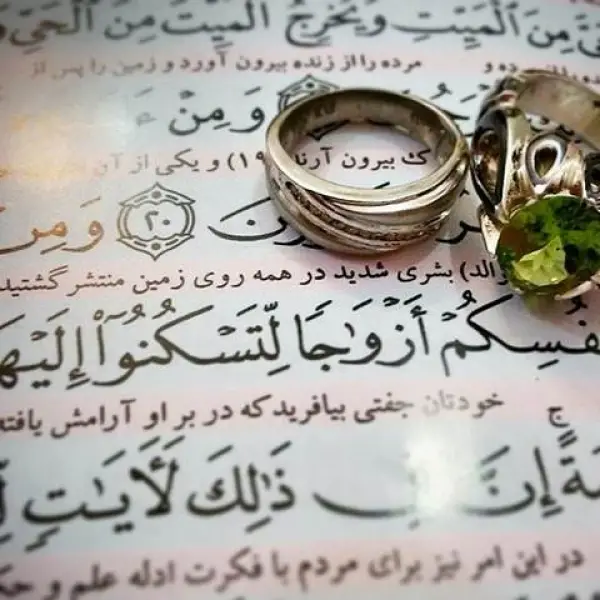 مِنَ ٱلْمَيِّتِ وَيُخْرِجُ ٱلْمَيِّتَ مِنَ ٱلْحَيِّ
مرده را از زنده بیرون آورد و زمین را پس از
وَمِنْ
بیرون آرند (۱۹) و یکی از آن
۲۰ وَمِنْ
بشری شدید در همه روی زمین منتشر گشتید
أَنفُسِكُمْ أَزْوَٰجًا لِّتَسْكُنُوٓا۟ إِلَيْهَا
خودتان جفتی بیافرید که در بر او آرامش یافته
إِنَّ فِى ذَٰلِكَ لَـَٔايَـٰتٍ
در این امر نیز برای مردم با فکرت ادله علم و